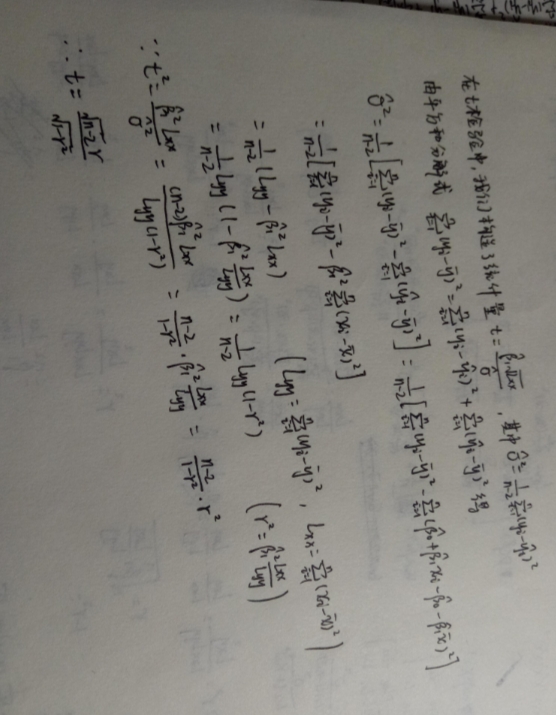 在t检验中,我们构造了统计量 t = β̂₁√Lxx / σ̂ , 其中 σ̂² = 1/(n-2) Σᵢ₌₁ⁿ(yᵢ-ŷᵢ)²
由平方和分解式 Σᵢ₌₁ⁿ(yᵢ-ȳ)² = Σᵢ₌₁ⁿ(yᵢ-ŷᵢ)² + Σᵢ₌₁ⁿ(ŷᵢ-ȳ)² 得
σ̂² = 1/(n-2) [Σᵢ₌₁ⁿ(yᵢ-ȳ)² - Σᵢ₌₁ⁿ(ŷᵢ-ȳ)²] = 1/(n-2) [Σᵢ₌₁ⁿ(yᵢ-ȳ)² - Σᵢ₌₁ⁿ(β̂₀+β̂₁xᵢ-β̂₀-β̂₁x̄)²]
= 1/(n-2) [Σᵢ₌₁ⁿ(yᵢ-ȳ)² - β̂₁² Σᵢ₌₁ⁿ(xᵢ-x̄)²]
(Lyy = Σᵢ₌₁ⁿ(yᵢ-ȳ)² , Lxx = Σᵢ₌₁ⁿ(xᵢ-x̄)²)
= 1/(n-2) (Lyy - β̂₁² Lxx)
= 1/(n-2) Lyy (1 - β̂₁² Lxx/Lyy) = 1/(n-2) Lyy (1-r²) (r² = β̂₁² Lxx/Lyy)
∵ t² = β̂₁² Lxx / σ̂² = (n-2)β̂₁² Lxx / Lyy(1-r²) = (n-2)/(1-r²) · β̂₁² Lxx/Lyy = (n-2)/(1-r²) · r²
∴ t = √(n-2) r / √(1-r²)